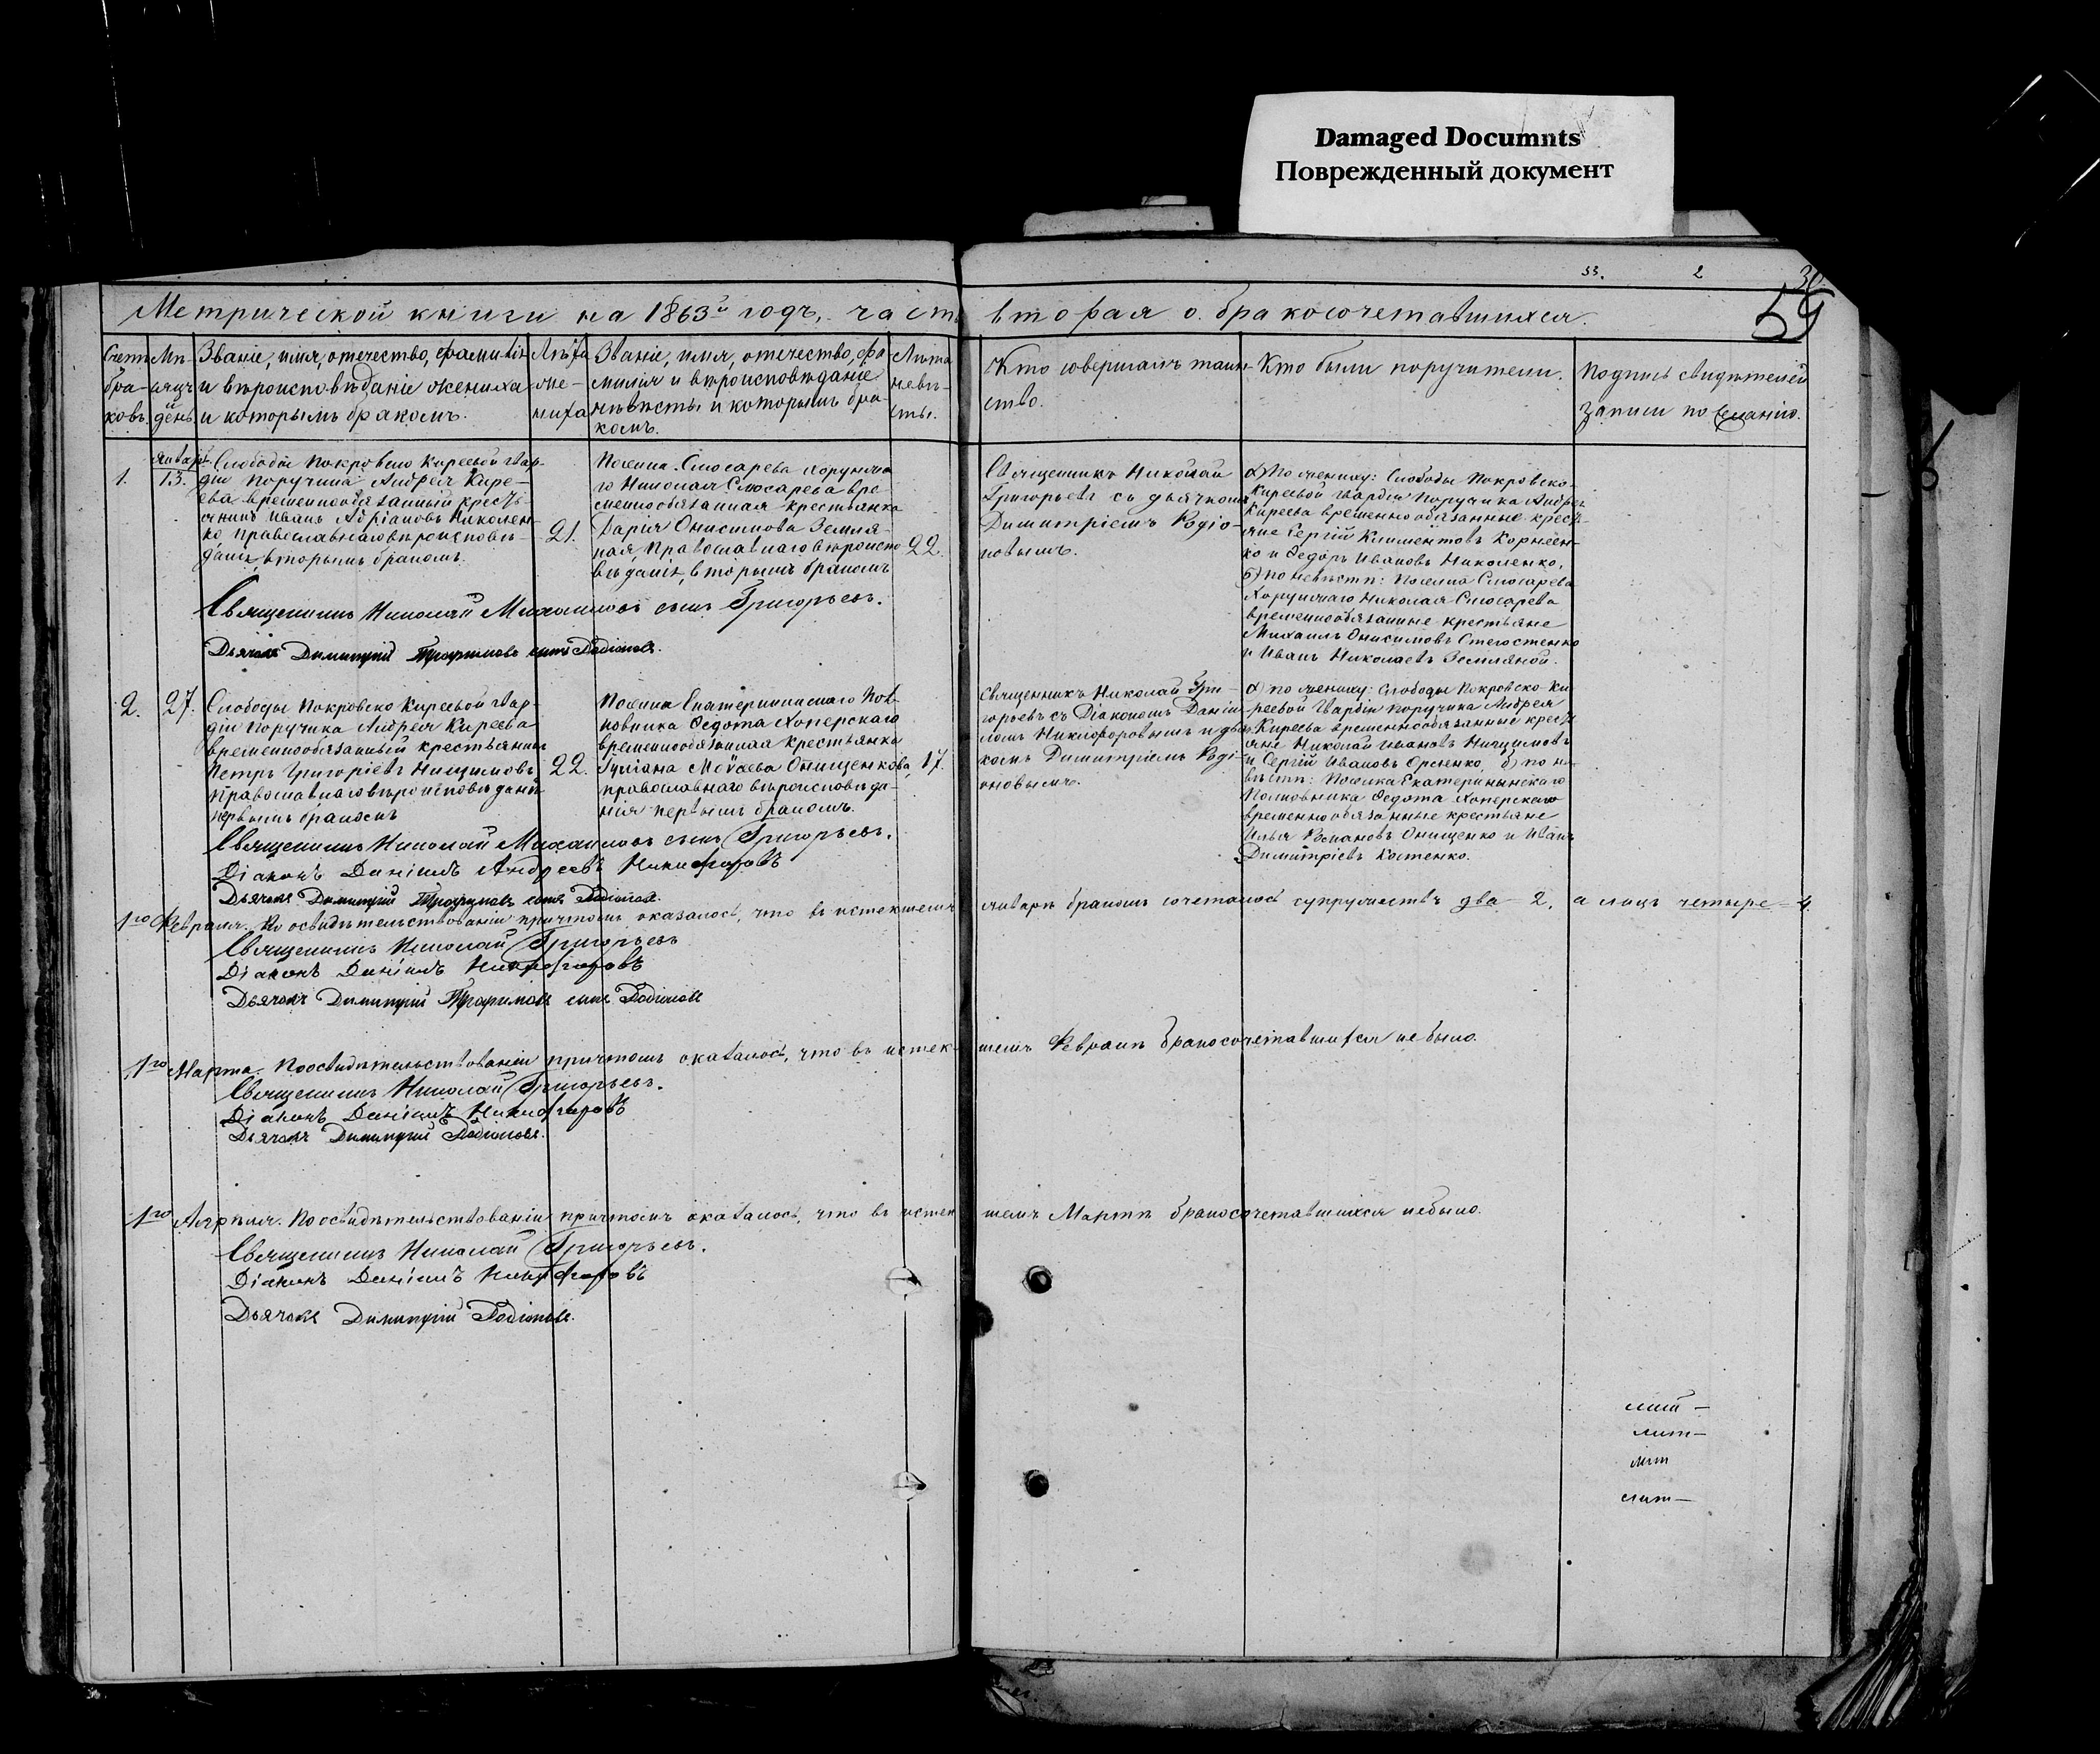 Damaged Documnts
Поврежденный документ
53. 2
30
59
Метрической книги на 1863й годъ, часть вторая о бракосочетавшихся.
Счетъ браковъ.
Мѣсяцъ и день
Званіе, имя, отечество, фамилія
и вѣроисповѣданіе жениха
и которымъ бракомъ.
Лѣта
же-
ниха
Званіе, имя, отечество, фа
милія и вѣроисповѣданіе
невѣсты и которымъ бра-
комъ.
Лѣта
невѣ-
сты.
Кто совершалъ таин-
ство.
Кто были поручители.
Подпись свидѣтелей
записи по желанію.
1.
Январь
13.
Слободы Покровско Киреевой Гвар-
діи Поручика Андрея Кире-
ева временнообязанный кресть-
янинъ Иванъ Адріановъ Николен-
ко, православнаго вѣроисповѣ-
данія, вторымъ бракомъ.
21.
Поселка Слюсарева Хорунжа
го Николая Слюсарева вре-
менообязанная крестьянка
Дарія Онисимова Земля-
ная, Православнаго вѣроиспо
вѣданія, вторымъ бракомъ
22.
Священникъ Николай
Григорьевъ съ дьячкомъ
Димитріемъ Родіо-
новымъ.
а) По жениху: Слободы Покровско-
Киреевой Гвардіи Поручика Андрея
Киреева временно обязанные кресть-
яне Сергій Климентовъ Корнѣен-
ко и Федоръ Ивановъ Николенко,
б) по невѣстѣ: Поселка Слюсарева
Хорунжаго Николая Слюсарева
временнообязанные крестьяне
Михаилъ Онисимовъ Стегостенко
и Иванъ Николаевъ Земляной.
Священникъ Николай Михаиловъ сынъ Григорьевъ.
Дьячокъ Димитрій Трофимовъ сынъ Родіоновъ.
2.
27.
Слободы Покровско Киреевой Гвар-
діи Поручика Андрея Киреева
временнообязанный крестьянинъ
Петръ Григоріевъ Нищимовъ,
Православнаго вѣроисповѣданія
первымъ бракомъ
22.
Поселка Екатерининскаго Пол-
ковника Федота Хоперскаго
временнообязанная крестьянка
Іуліана Моѵсеева Онищенкова,
православнаго вѣроисповѣда-
нія первымъ бракомъ.
17.
Священникъ Николай Гри-
горьевъ съ Діакономъ Даніи-
ломъ Никифоровымъ и дьяч-
комъ Димитріемъ Роді-
оновымъ.
а) по жениху: Слободы Покровско-Ки
реевой Гвардіи Поручика Андрея
Киреева временнообязанные кресть
яне Николай Ивановъ Нищимовъ
и Сергій Ивановъ б) по не-
вѣстѣ: Поселка Екатерининскаго
Полковника Федота Хоперскаго
временнообязанные крестьяне
Илья Романовъ Онищенко и Иванъ
Димитріевъ Костенко.
Священникъ Николай Михаиловъ сынъ Григорьевъ.
Діаконъ Даніилъ Андреевъ Никифоровъ
Дьячокъ Димитрій Трофимовъ сынъ Родіоновъ.
1го Февраля. По освидѣтельствованіи причтомъ оказалось, что въ истекшемъ январѣ бракомъ сочеталось супружествъ два – 2, а лицъ четыре – 4.
Священникъ Николай Григорьевъ
Діаконъ Даніилъ Никифоровъ
Дьячокъ Димитрій Трофимовъ сынъ Родіоновъ
1го Марта. По освидѣтельствованіи причтомъ оказалось, что въ истек-шемъ Февралѣ бракосочетавшихся не было.
Священникъ Николай Григорьевъ.
Діаконъ Даніилъ Никифоровъ
Дьячокъ Димитрій Родіоновъ.
1го Апрѣля. По освидѣтельствованіи причтомъ оказалось, что въ истек шемъ Мартѣ бракосочетавшихся небыло.
Священникъ Николай Григорьевъ.
Діаконъ Даніилъ Никифоровъ
Дьячокъ Димитрій Родіоновъ.